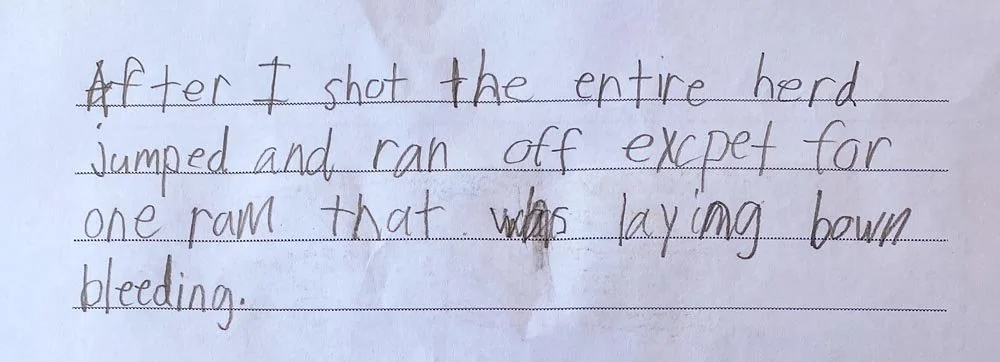 After I shot the entire herd
jumped and ran off excpet for
one ram that was laying bown
bleeding.